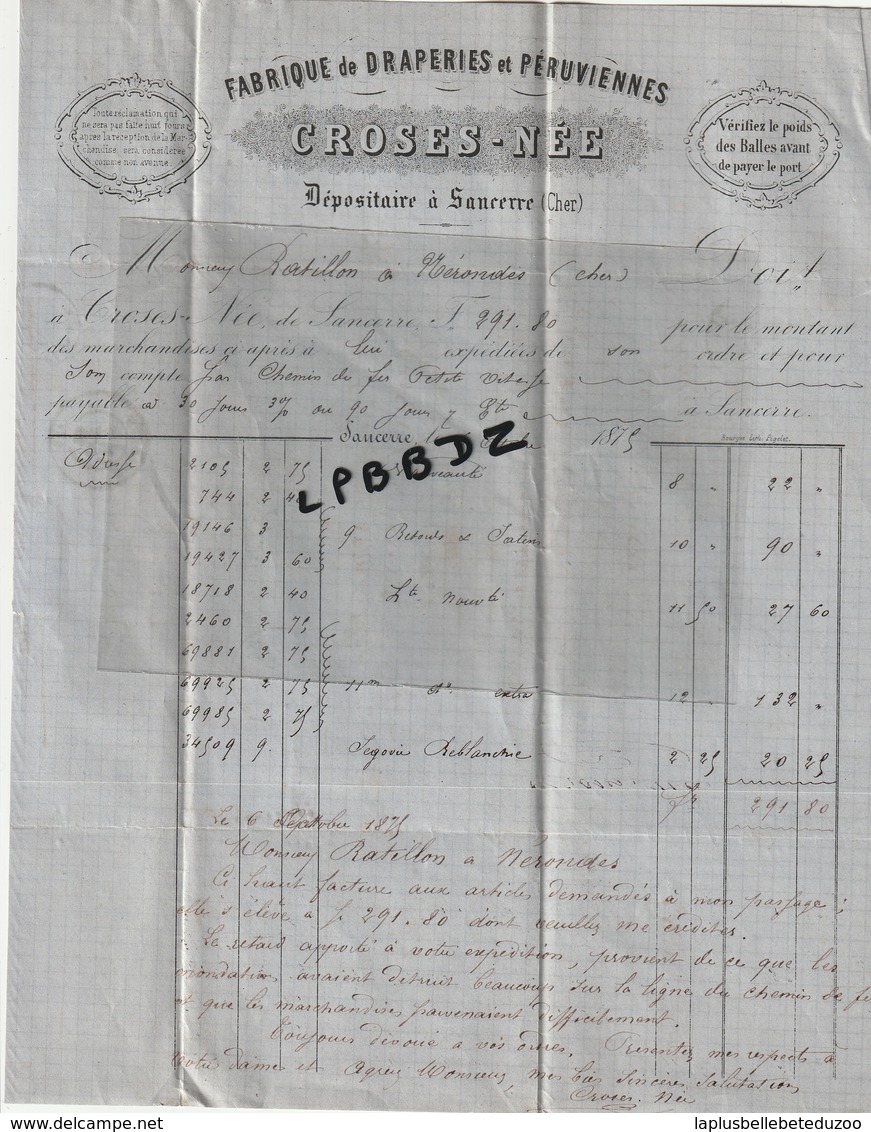 FABRIQUE de DRAPERIES et PÉRUVIENNES
Toute réclamation qui
ne sera pas faite huit jours
après la réception de la Mar-
chandise, sera considérée
comme non avenue.
CROSES-NÉE
Vérifiez le poids
des Balles avant
de payer le port
Dépositaire à Sancerre (Cher)
Monsieur Ratillon à Nérondes (Cher) Doit
à Croses-Née, de Sancerre, F. 291.80 pour le montant
des marchandises ci après à lui expédiées de son ordre et pour
son compte par Chemin de fer Petite Vitesse
payable à 30 jours 3% ou 90 jours à Sancerre.
Sancerre, 1875
Bourges Lith. Pigelet.
Adresse 2105 2 75 Nouveauté 8 " 22 "
744 2 40
19146 3
9 Retords & Satins 10 " 90 "
19427 3 60
18718 2 40 Nouvté 11 50 27 60
2460 2 75
69881 2 75
69925 2 75 11m do extra 12 " 132 "
69985 2 75
34509 9 Segovie Reblanchie 2 25 20 25
291 80
LPBBDZ
Le 6 1875
Monsieur Ratillon a Nérondes
Ci haut facture aux articles demandés à mon passage ;
elle s'élève a f. 291.80 dont veuillez me créditer.
Le retard apporté à votre expédition, provient de ce que les
inondations avaient détruit beaucoup sur la ligne du chemin de fer
et que les marchandises parvenaient difficilement.
Toujours dévoué a vos ordres. Présentez mes respects à
votre dames et Agréez Monsieur, mes bien sincères salutations
Croses-Née
laplusbellebeteduzoo